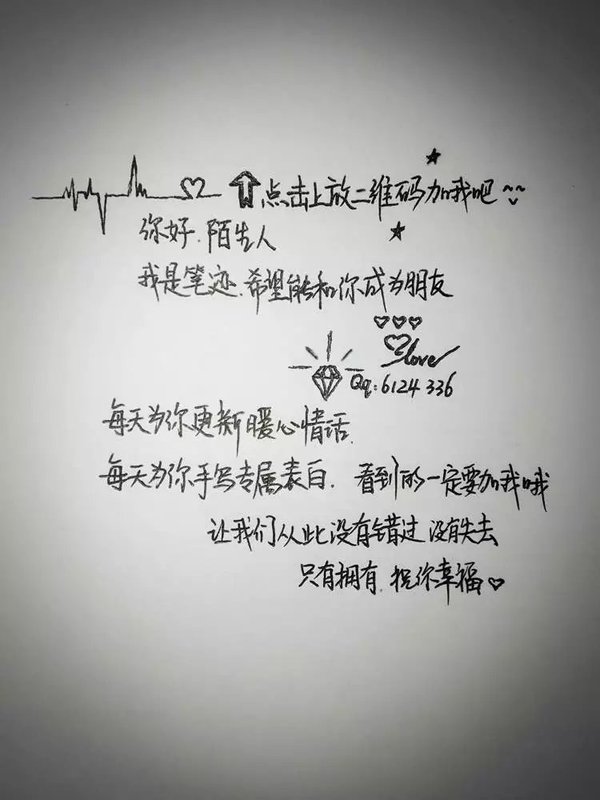 点击上放二维码加我吧~~
你好.陌生人
我是笔迹.希望能和你成为朋友
love
Qq:6124336
每天为你更新暖心情话.
每天为你手写专属表白. 看到的一定要加我哦
让我们从此没有错过 没有失去
只有拥有.祝你幸福